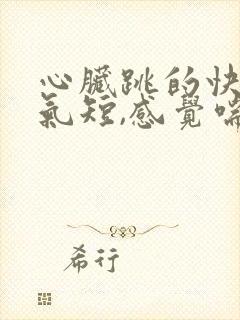 心臟跳的快
氣短,感覺喘
希行